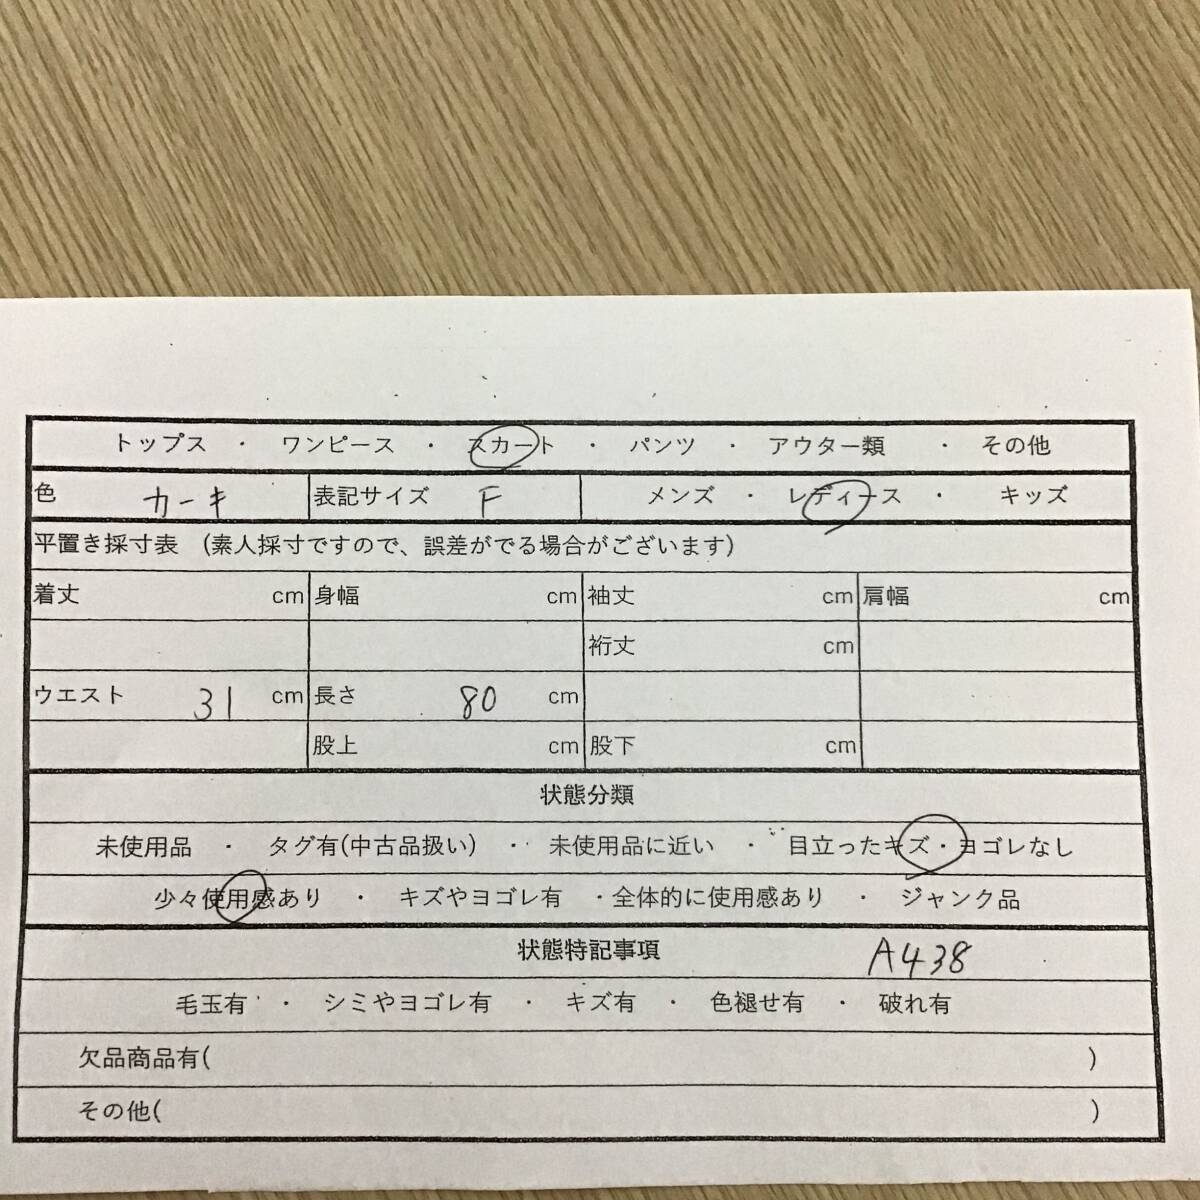 トップス ・ ワンピース ・ スカート ・ パンツ ・ アウター類 ・ その他
色 カーキ 表記サイズ F メンズ ・ レディース ・ キッズ
平置き採寸表 (素人採寸ですので、誤差がでる場合がございます)
着丈 cm 身幅 cm 袖丈 cm 肩幅 cm
裄丈 cm
ウエスト 31 cm 長さ 80 cm
股上 cm 股下 cm
状態分類
未使用品 ・ タグ有(中古品扱い) ・ 未使用品に近い ・ 目立ったキズ・ヨゴレなし
少々使用感あり ・ キズやヨゴレ有 ・全体的に使用感あり ・ ジャンク品
状態特記事項 A438
毛玉有 ・ シミやヨゴレ有 ・ キズ有 ・ 色褪せ有 ・ 破れ有
欠品商品有( )
その他( )